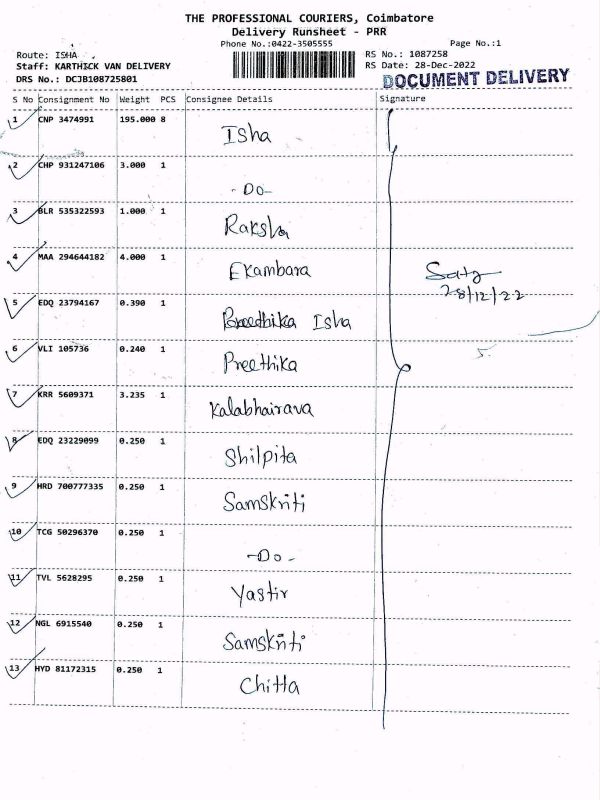 THE PROFESSIONAL COURIERS, Coimbatore
Delivery Runsheet - PRR
Phone No.:0422-3505555 Page No.:1
Route: ISHA RS No.: 1087258
Staff: KARTHICK VAN DELIVERY RS Date: 28-Dec-2022
DRS No.: DCJB108725801 DOCUMENT DELIVERY
S No Consignment No Weight PCS Consignee Details Signature
1 CNP 3474991 195.000 8 Isha
2 CHP 931247106 3.000 1 -Do-
3 BLR 535322593 1.000 1 Raksha
4 MAA 294644182 4.000 1 Ekambara
28/12/22
5 EDQ 23794167 0.390 1 Preethika Isha
6 VLI 105736 0.240 1 Preethika
7 KRR 5609371 3.235 1 Kalabhairava
8 EDQ 23229099 0.250 1 Shilpita
9 HRD 700777335 0.250 1 Samskriti
10 TCG 50296370 0.250 1 -Do-
11 TVL 5628295 0.250 1 Yastir
12 NGL 6915540 0.250 1 Samskriti
13 HYD 81172315 0.250 1 Chitta